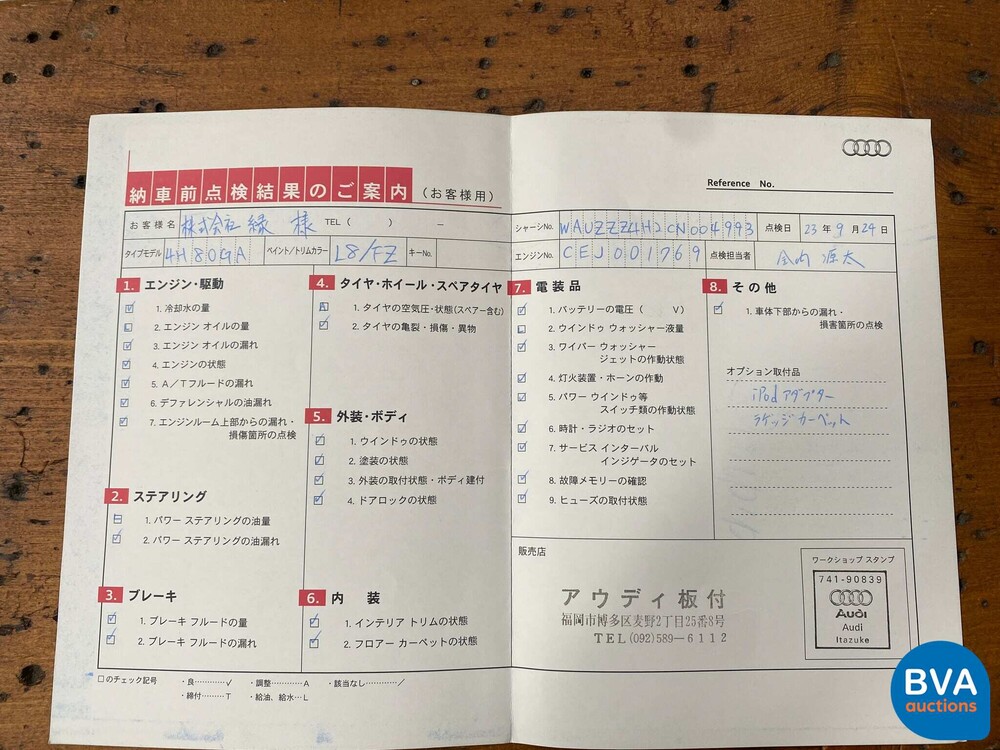 納車前点検結果のご案内 (お客様用)
Reference No.
お客様名 株式会社 緑 様 TEL ( ) −
シャーシNo. WAUZZZ4H2CN004993 点検日 23年 9月 24日
タイプモデル 4H80GA ペイント/トリムカラー L8/FZ キーNo.
エンジンNo. CEJ001769 点検担当者
1. エンジン・駆動
1. 冷却水の量
2. エンジン オイルの量
3. エンジン オイルの漏れ
4. エンジンの状態
5. A/Tフルードの漏れ
6. デファレンシャルの油漏れ
7. エンジンルーム上部からの漏れ・
損傷箇所の点検
2. ステアリング
1. パワー ステアリングの油量
2. パワー ステアリングの油漏れ
3. ブレーキ
1. ブレーキ フルードの量
2. ブレーキ フルードの漏れ
4. タイヤ・ホイール・スペアタイヤ
1. タイヤの空気圧・状態(スペアー含む)
2. タイヤの亀裂・損傷・異物
5. 外装・ボディ
1. ウインドゥの状態
2. 塗装の状態
3. 外装の取付状態・ボディ建付
4. ドアロックの状態
6. 内 装
1. インテリア トリムの状態
2. フロアー カーペットの状態
□のチェック記号 ・良………√ ・調整…………A ・該当なし………/
・締付………T ・給油、給水…L
7. 電装品
1. バッテリーの電圧 ( V)
2. ウインドゥ ウォッシャー液量
3. ワイパー ウォッシャー
ジェットの作動状態
4. 灯火装置・ホーンの作動
5. パワー ウインドゥ等
スイッチ類の作動状態
6. 時計・ラジオのセット
7. サービス インターバル
インジゲータのセット
8. 故障メモリーの確認
9. ヒューズの取付状態
8. その他
1. 車体下部からの漏れ・
損害箇所の点検
オプション取付品
iPodアダプター
ラゲッジカーペット
販売店
アウディ板付
福岡市博多区麦野2丁目25番8号
TEL (092)589−6112
ワークショップ スタンプ
741-90839
Audi
Audi
Itazuke
BVA
auctions